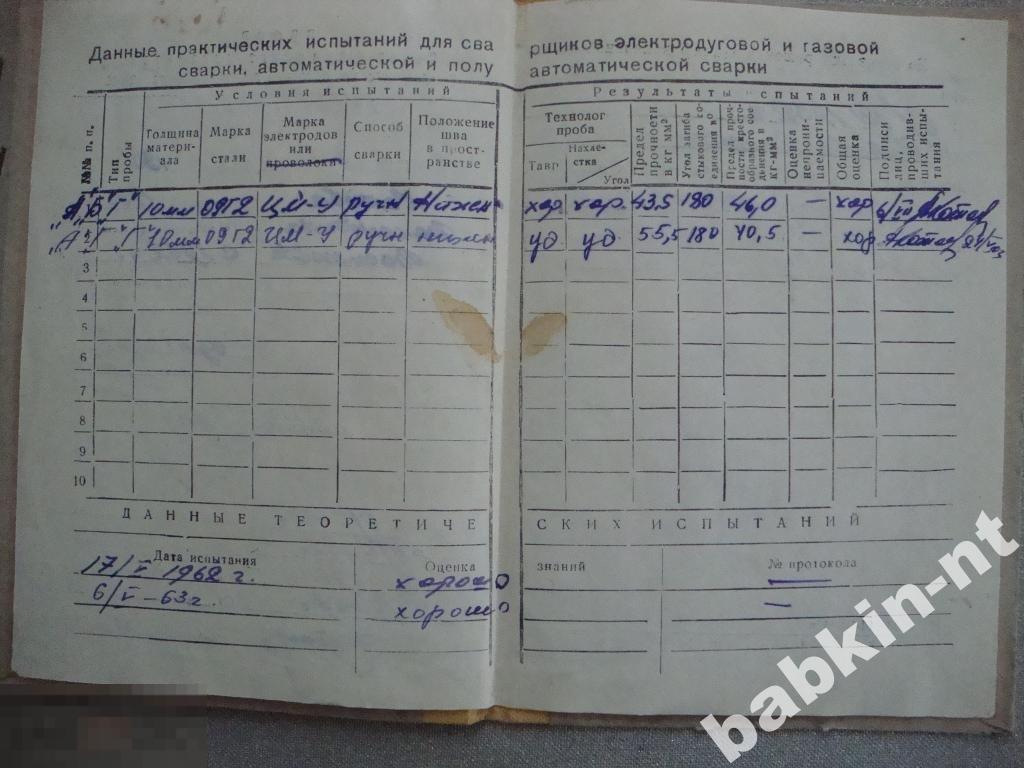 Данные практических испытаний для сва рщиков электродуговой и газовой
сварки, автоматической и полу автоматической сварки
Условия испытаний Результаты испытаний
№№ п. п. Тип пробы Толщина матери- ала Марка стали Марка электродов или проволоки Способ сварки Положение шва в прост- ранстве Технолог проба Тавр Нахле- стка Угол Предел прочности в кг мм² Угол загиба стыкового со- единения в ° Предел проч- ности кресто- образного сое- динения в кг-мм² Оценка непрони- цаемости Общая оценка Подписи лиц, проводив- ших испы- тания
10мм 09Г2 ЦМ-У ручн Нижн хор хор. 43,5 180 46,0 — хор
10мм 09Г2 ЦМ-У ручн нижн уд уд. 55,5 180 40,5 — хор
3
4
5
6
7
8
9
10
ДАННЫЕ ТЕОРЕТИЧЕ СКИХ ИСПЫТАНИЙ
Дата испытания Оценка знаний № протокола
17/V 1962 г. хорошо —
6/V-63г. хорошо —
babkin-nt